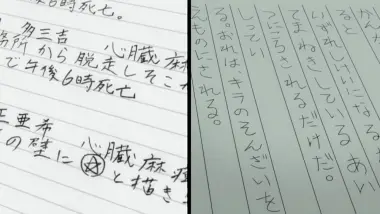 6時死亡。
多三吉 心臓麻
務所から脱走しそこ
で午後6時死亡
亜希 心臓麻痺
の壁に ☆ と描き
かんが
ると
いずれ
てまねきしている
ろされるだけだ。
しってい
る。おれは、キラのそんざいを
えものにされる。